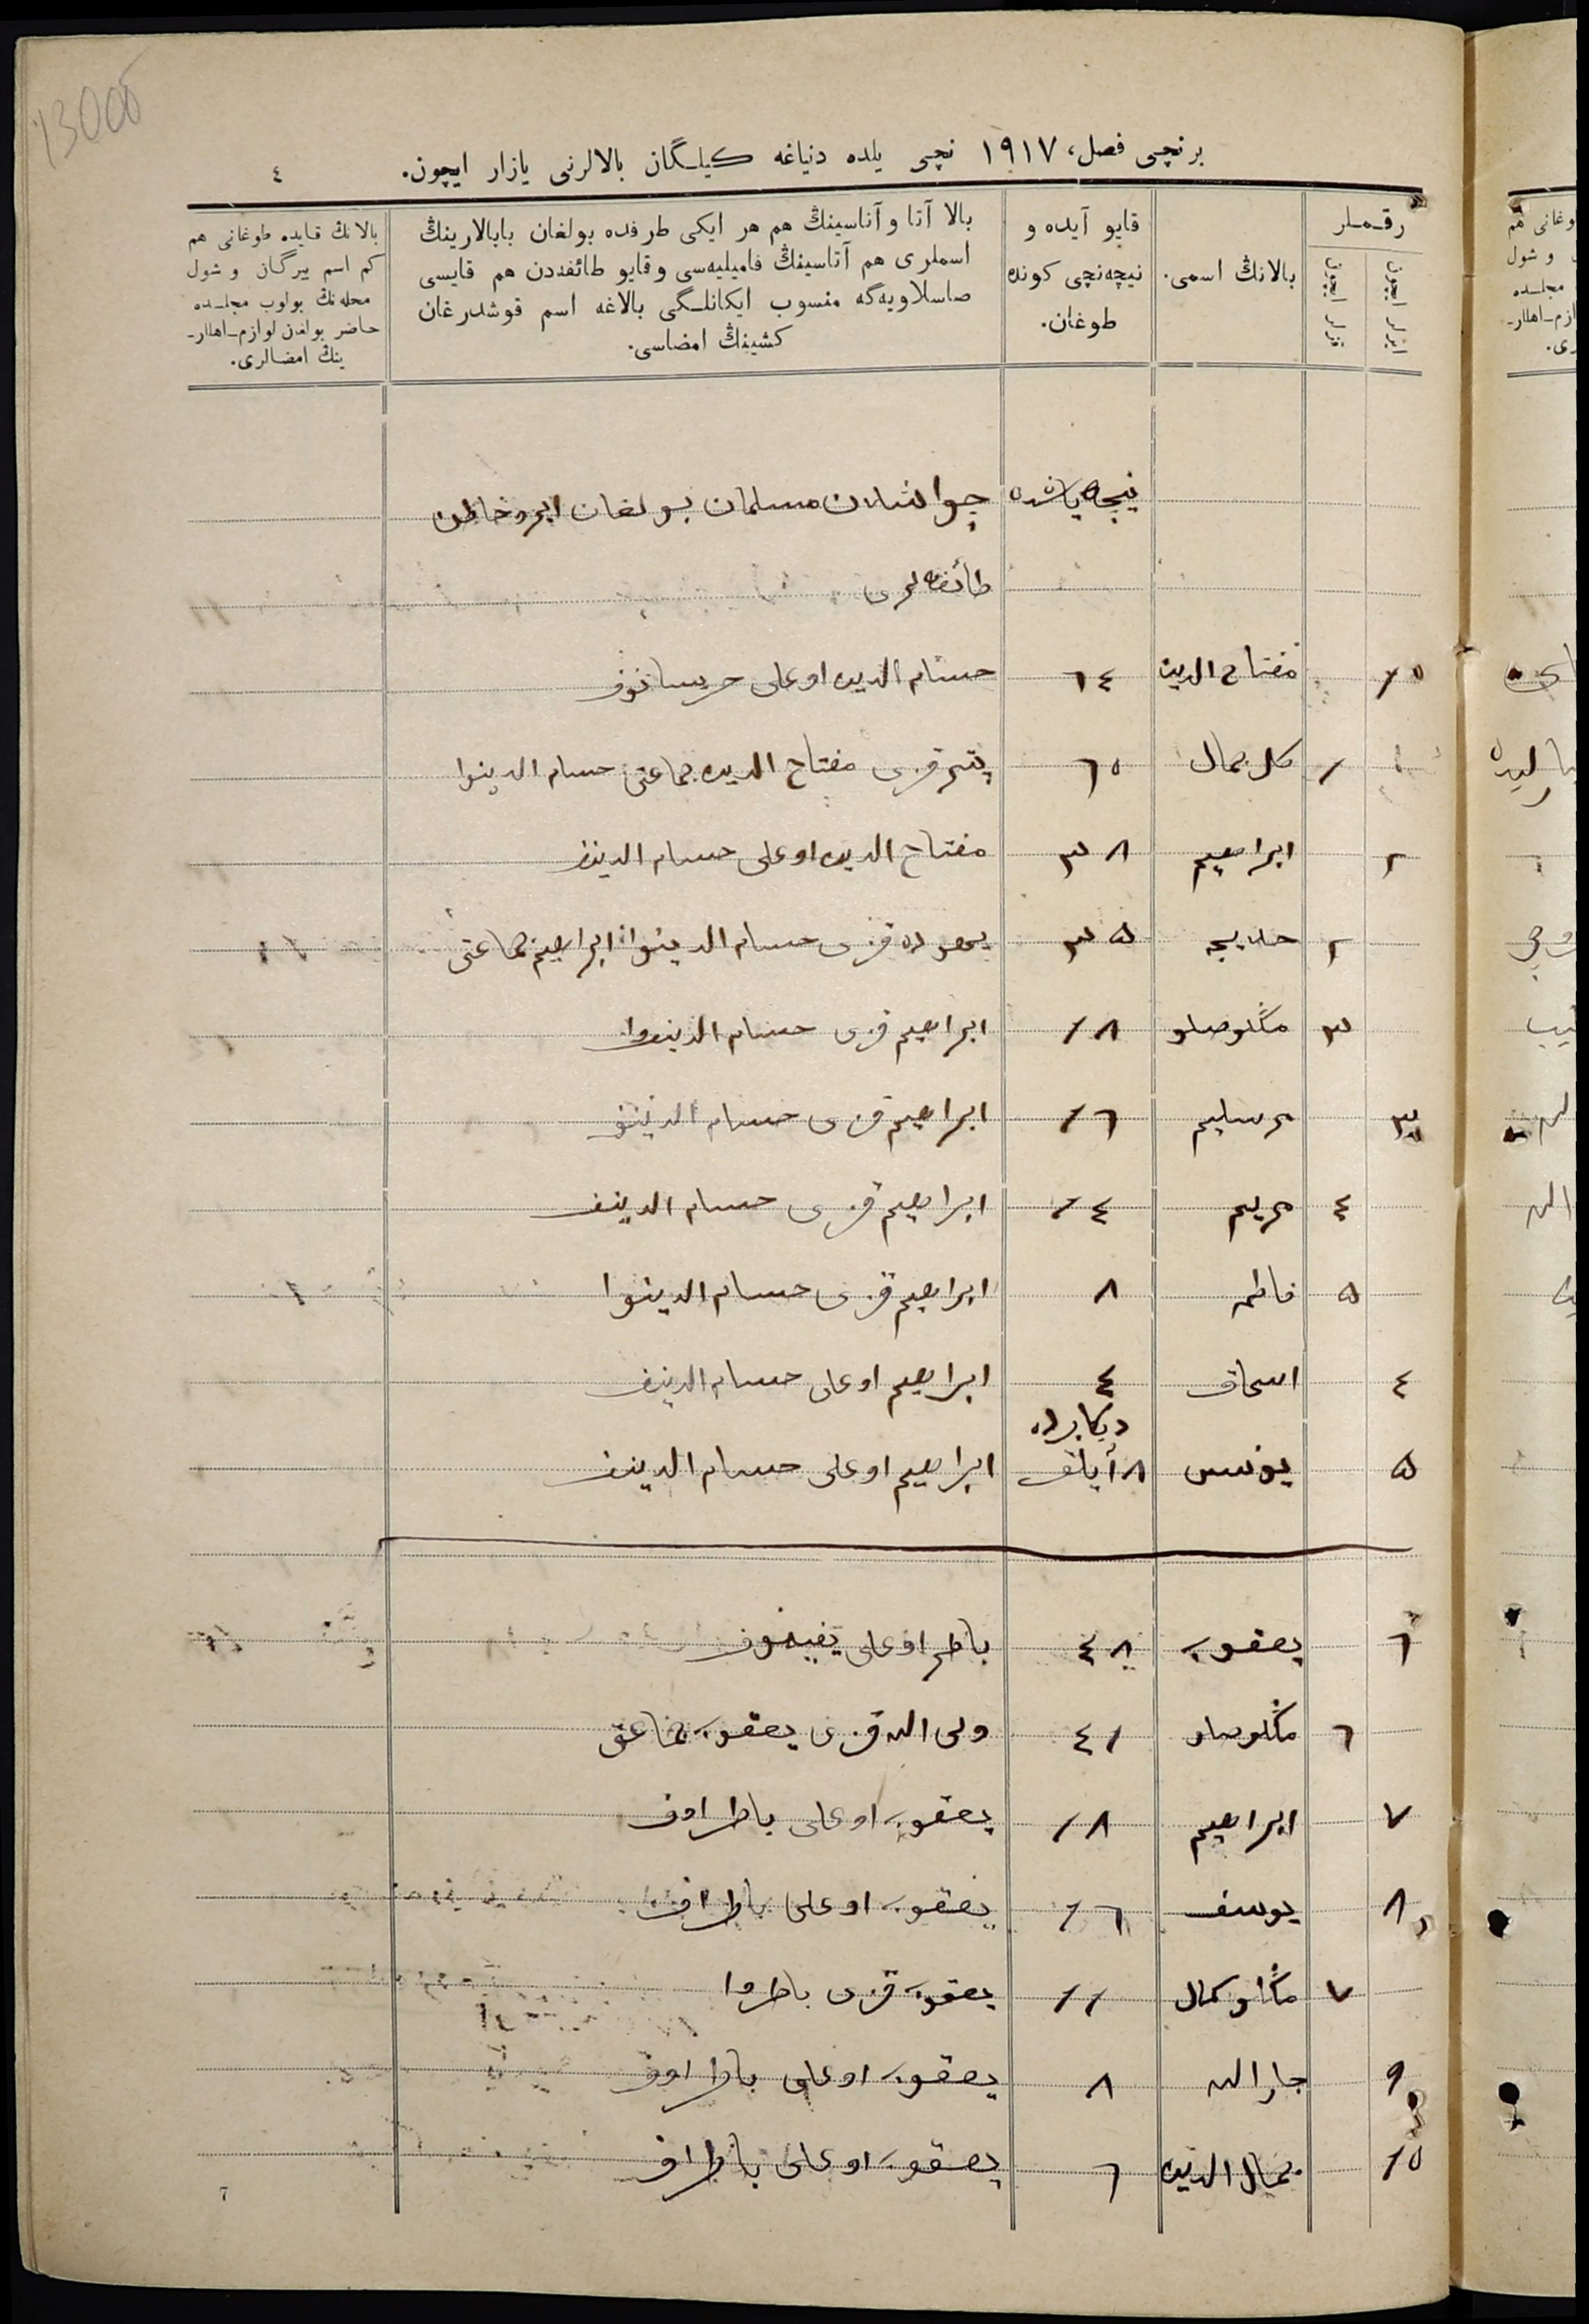 13000
برنچی فصل، ١٩١٧ نچی یلده دنیاغه کیلگان بالالرنی یازار ایچون.
٤
رقملر
ایرلر ایچون
قزلر ایچون
بالانڭ اسمی.
قایو آیده و
نیچه‌نچی کونده
طوغان.
بالا آتا و آناسینڭ هم هر ایکی طرفده بولغان بابالارینڭ
اسملری هم آتاسینڭ فامیلیه‌سی و قایو طائفه‌دن هم قایسی
صاسلاویه‌گه منسوب ایکانلگی بالاغه اسم قوشدرغان
کشینڭ امضاسی.
بالانڭ قایده طوغانی هم
کم اسم بیرگان و شول
محله‌نڭ بولوب مجلسده
حاضر بولغان لوازم-اهللر-
ینڭ امضالری.
نیچه یاشده چواشلادن مسلمان بولغان ایر و خاطن
طائفه لری
١ مفتاح الدین ٦٤ حسام الدین اوغلی
١ کل جمال ٦٥ قزی مفتاح الدین جماعتی حسام الدینوا
٢ ابراهیم ٣٨ مفتاح الدین اوغلی حسام الدینف
٢ خدیجه ٣٥ قزی حسام الدینوا ابراهیم جماعتی
٣ منڭلوصلو ١٨ ابراهیم قزی حسام الدینوا
٣ مرسلیم ١٦ ابراهیم قزی حسام الدینف
٤ مریم ١٤ ابراهیم قزی حسام الدینف
٥ فاطمه ٨ ابراهیم قزی حسام الدینوا
٤ اسحاق ٤ ابراهیم اوغلی حسام الدینف
دیکابرده
٥ یونس ٨ آیلق ابراهیم اوغلی حسام الدینف
٦ یعقوب ٤٨ باطر اوغلی
٦ منڭلوصلو ٤١ ولی الله قزی یعقوب جماعتی
٧ ابراهیم ١٨ یعقوب اوغلی باطراوف
٨ یوسف ١٦ یعقوب اوغلی باطراف
٧ منڭلوکمال ١١ یعقوب قزی باطروا
٩ جارالله ٨ یعقوب اوغلی باطراوف
١٥ جمال الدین ٦ یعقوب اوغلی باطراف